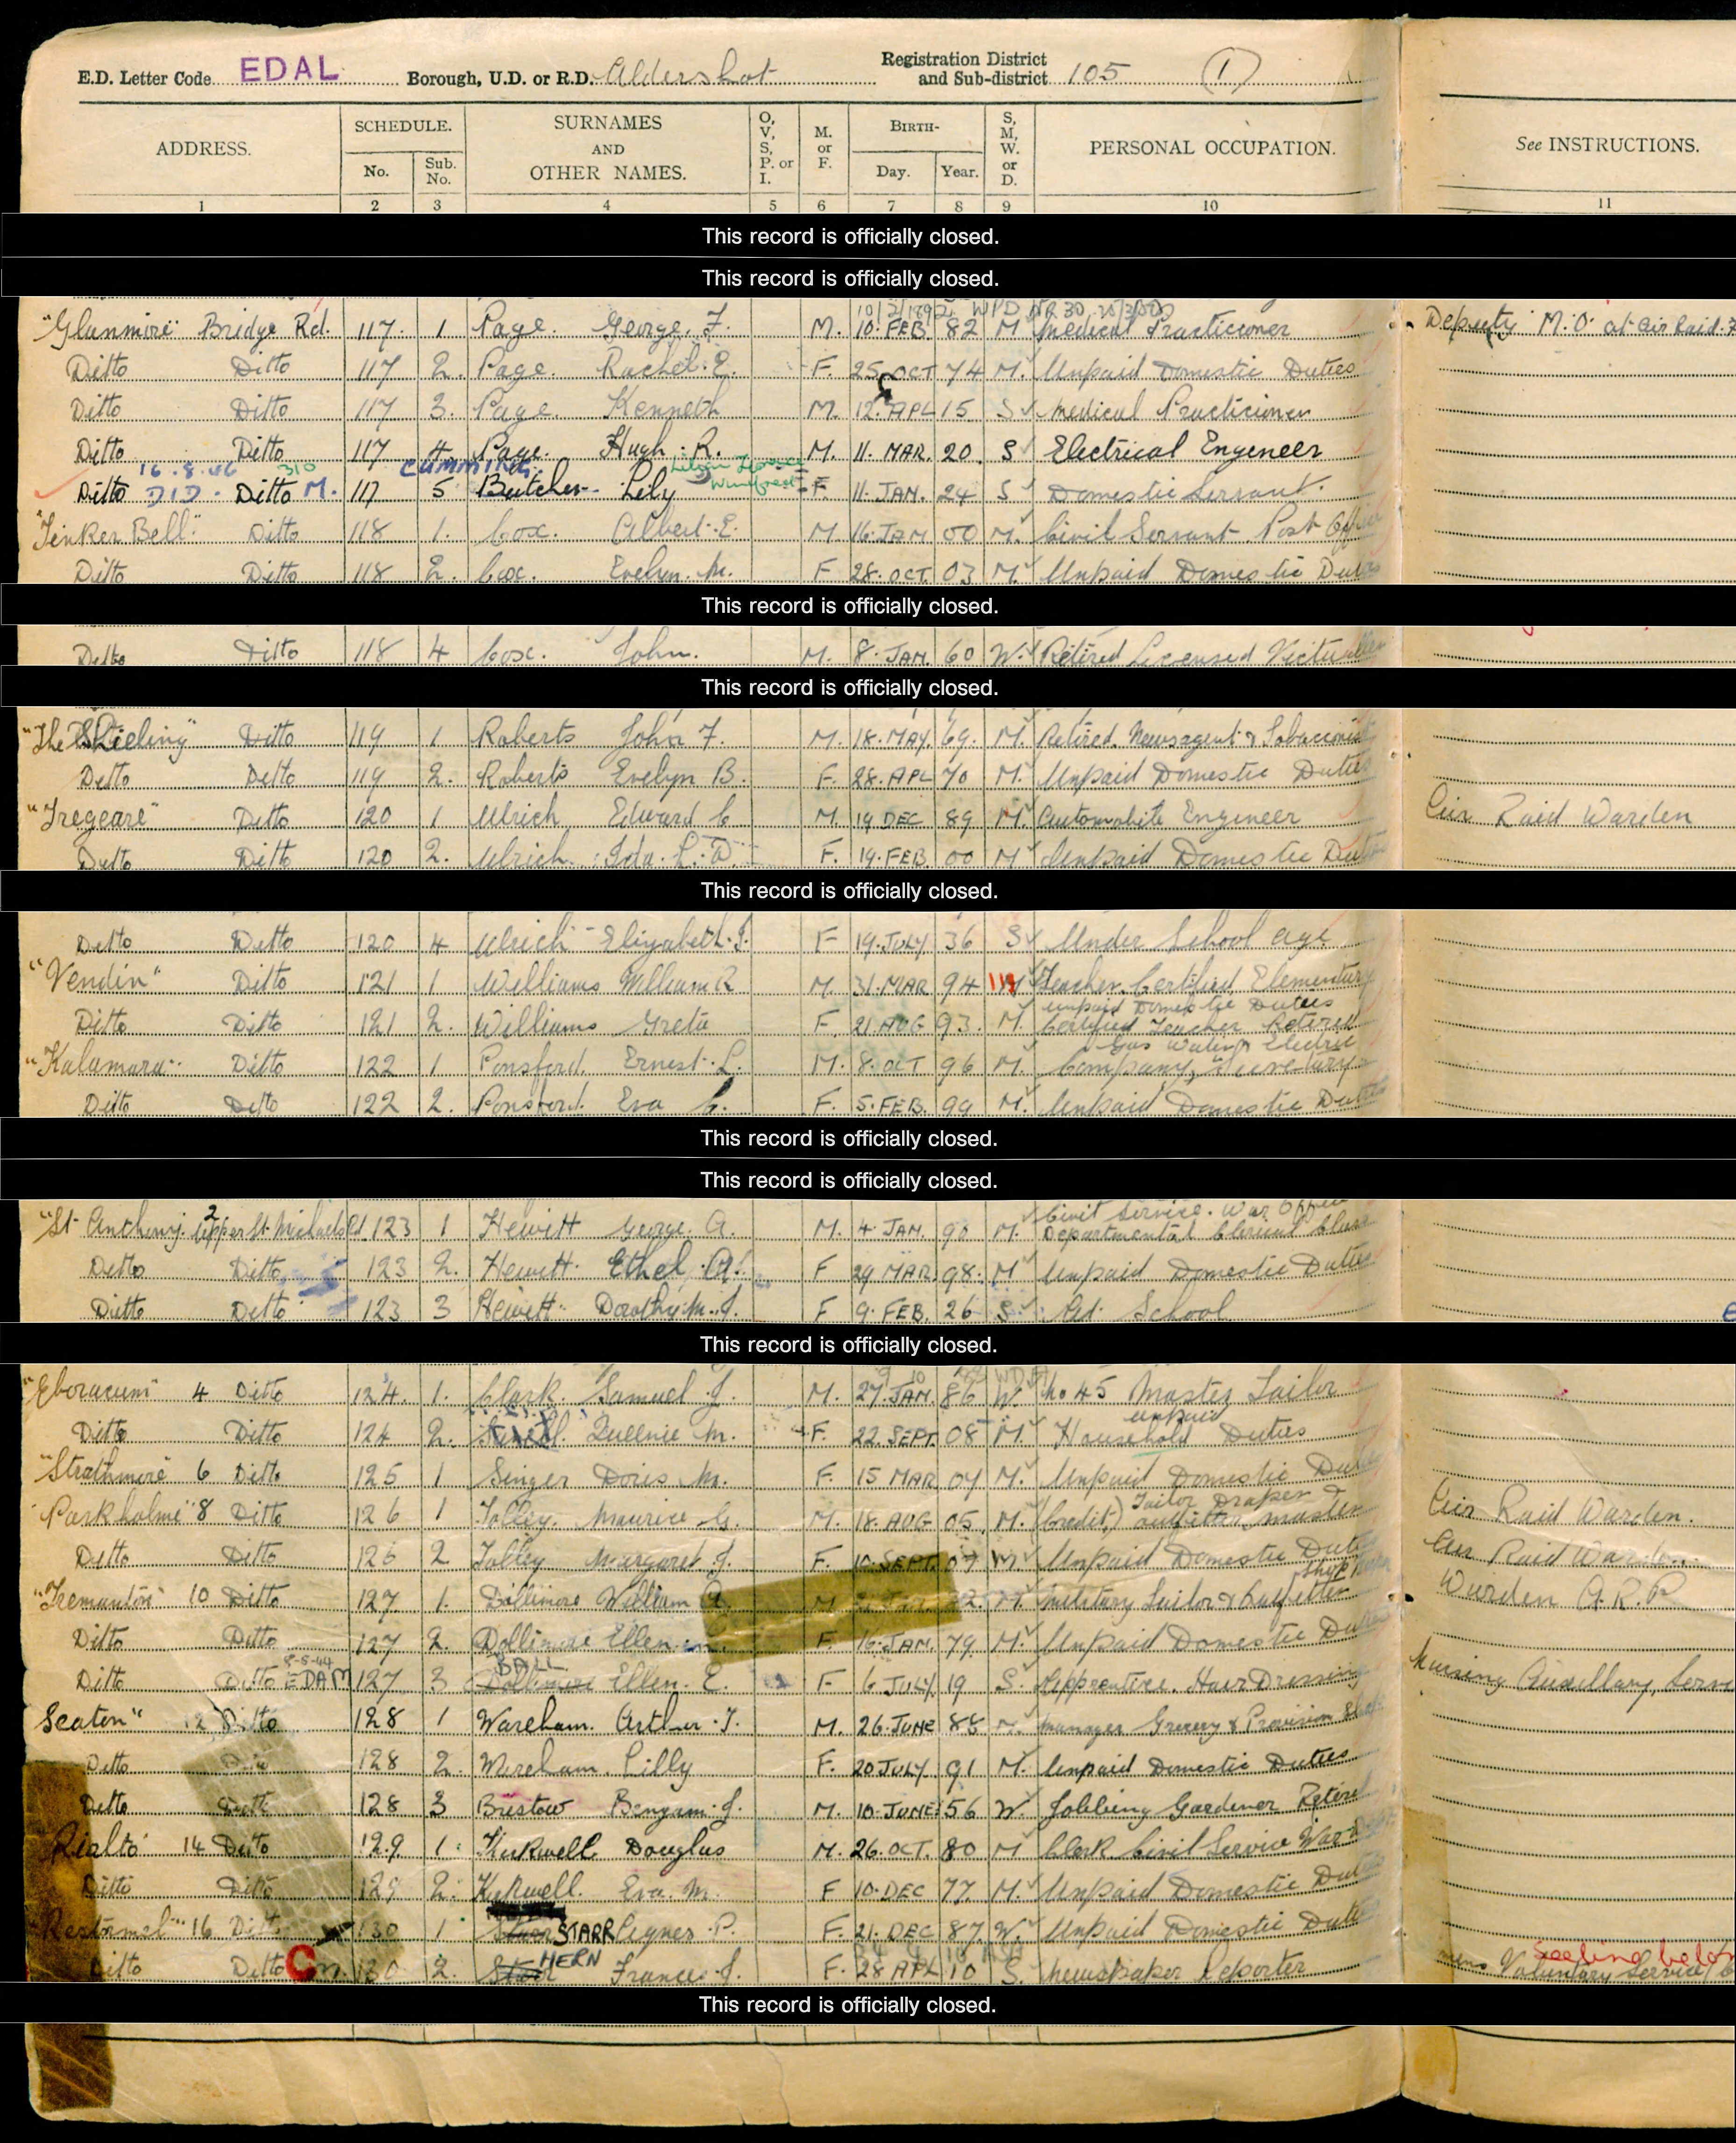 E.D. Letter Code EDAL Borough, U.D. or R.D. Aldershot Registration District and Sub-district 105 (1)
ADDRESS. SCHEDULE. No. Sub. No. SURNAMES AND OTHER NAMES. O, V, S, P. or I. M. or F. BIRTH- Day. Year. S, M, W. or D. PERSONAL OCCUPATION. See INSTRUCTIONS.
1 2 3 4 5 6 7 8 9 10 11
This record is officially closed.
This record is officially closed.
"Glunmire" Bridge Rd. 117. 1 Page. George. F. M. 10. FEB. 82 M Medical Practicioner Deputy M.O. at Air Raid
Ditto Ditto 117 2. Page. Rachel. E. F. 25 OCT 74 M. Unpaid Domestic Duties
Ditto Ditto 117 3. Page. Kenneth M. 12. APL 15 S Medical Practicioner
Ditto Ditto 117 4. Page. Hugh. R. M. 11. MAR. 20. S Electrical Engineer
16.8.46 310 CUMMING
Ditto D.I.D. Ditto M. 117 5 Butcher Lily F. 11. JAN. 24 S Domestic Servant.
"Tinker Bell" Ditto 118 1. Cox. Albert. E. M. 16. JAN 00 M. Civil Servant Post Office
Ditto Ditto 118 2. Cox. Evelyn. M. F 28. OCT. 03 M. Unpaid Domestic Duties
This record is officially closed.
Ditto Ditto 118 4 Cox. John. M. 8. JAN. 60 W. Retired Licensed Victualler
This record is officially closed.
"The Shieling" Ditto 119 1 Roberts John F. M. 18. MAY. 69. M. Retired. Newsagent & Tobacconist
Ditto Ditto 119 2. Roberts Evelyn B. F. 28. APL 70 M. Unpaid Domestic Duties
"Tregeare" Ditto 120 1 Ulrich Edward C M. 19 DEC 89 M. Automobile Engineer Air Raid Warden
Ditto Ditto 120 2. Ulrich. Ida. L. D. F. 19. FEB 00 M Unpaid Domestic Duties
This record is officially closed.
Ditto Ditto 120 4 Ulrich Elizabeth. J. F 19. JULY 36 S Under School age
"Vendin" Ditto 121 1 Williams William R M. 31. MAR 94 M Teacher. Certified Elementary
Unpaid Domestic Duties
Ditto Ditto 121 2. Williams Greta F 21. AUG 93. M. Certified Teacher Retired
Gas Water & Electric
"Kalamara" Ditto 122 1 Ponsford. Ernest. L. M. 8. OCT 96 M. Company, Secretary
Ditto Ditto 122 2. Ponsford. Eva C. F. 5. FEB. 99 M. Unpaid Domestic Duties
This record is officially closed.
This record is officially closed.
Civil Service. War Office
"St Anthony. 2 Upper St. Michaels Rd 123 1 Hewitt George. A. M. 4. JAN. 90 M. Departmental Clerical Class
Ditto Ditto 123 2. Hewitt. Ethel. A. F 29 MAR 98. M Unpaid Domestic Duties
Ditto Ditto 123 3 Hewitt. Dorothy. M. J. F 9. FEB. 26 S. At School
This record is officially closed.
"Eboracum" 4 Ditto 124. 1. Clark. Samuel. J. M. 27. JAN. 86 W. No 45 Master Tailor
unpaid
Ditto Ditto 124 2. Queenie M. F. 22. SEPT. 08 M. Household Duties
"Strathmore" 6 Ditto 125 1 Singer Doris M. F. 15 MAR 07 M. Unpaid Domestic Duties
Tailor Draper
"Parkholme" 8 Ditto 126 1 Tolley. Maurice G. M. 18. AUG 05. M. (Credit) outfitter master Air Raid Warden.
Ditto Ditto 126 2 Tolley Margaret. J. F. SEPT. 07 M. Unpaid Domestic Duties Air Raid Warden
"Tremanton" 10 Ditto 127 1. Dollimore William A. M 82. M. Military Tailor & Outfitter Warden A.R.P
Ditto Ditto 127 2. Dollimore Ellen. F. 16. JAN. 79 M. Unpaid Domestic Duties
8-5-44 BALL
Ditto Ditto EDAM 127 3 Dollimore Ellen. E. F 6 JULY 19 S. Apprentice. Hair Dressing Nursing Auxillary, Serv
Seaton" 12 Ditto 128 1 Wareham. Arthur. T. M. 26. JUNE 88 M. Manager Grocery & Provision Shop
Ditto Ditto 128 2. Wareham. Lilly F. 20 JULY 91 M. Unpaid Domestic Duties
Ditto Ditto 128 3 Bristow Benjam. J. M. 10. JUNE 56 W. Jobbing Gardener Retired
Rialto" 14 Ditto 129 1. Kirkwell Douglas M. 26. OCT. 80 M Clerk Civil Service War
Ditto Ditto 129 2. Kirkwell. Eva. M. F 10. DEC 77. M. Unpaid Domestic Duties
"Restormel" 16 Ditto 130 1 STARR Agnes. P. F. 21. DEC 87. W. Unpaid Domestic Duties
HERN Seeling below
Ditto Ditto C 130 2. Starr Frances. J. F. 28 APL 10 S. Newspaper Reporter Voluntary Service
This record is officially closed.